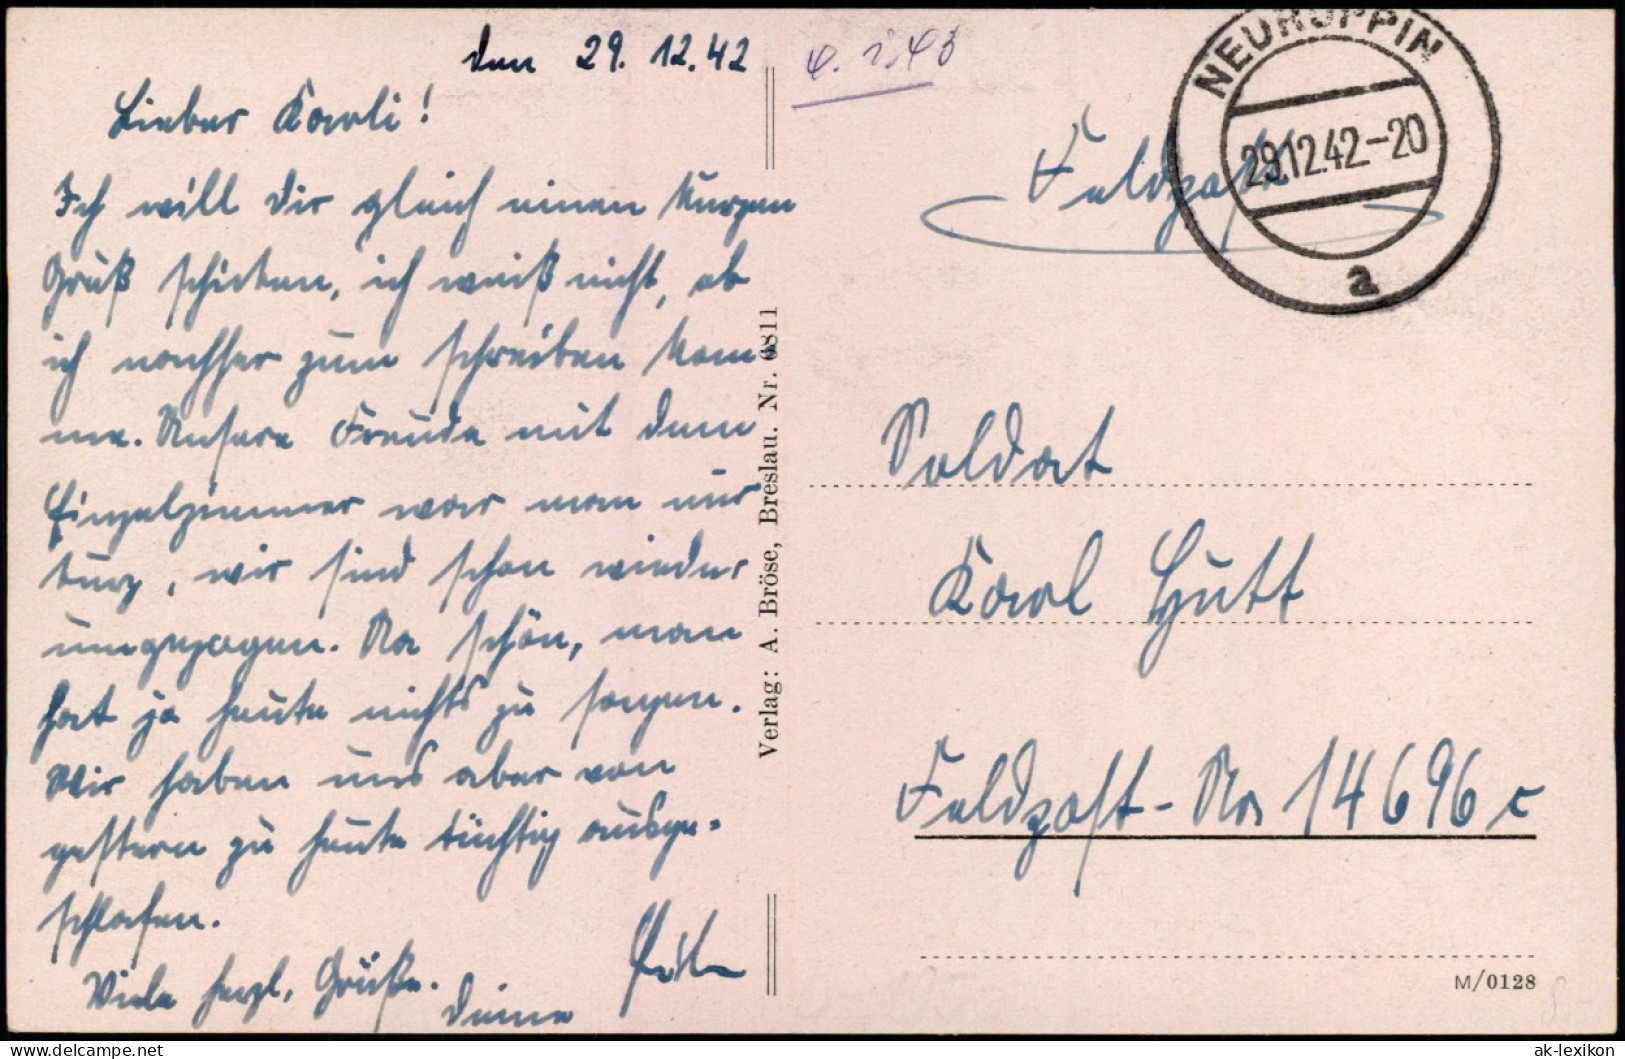 den 29. 12. 42
Lieber Karli!
Ich will Dir gleich einen kurzen
Gruß schicken, ich weiß nicht, ob
ich nachher zum schreiben kom-
me. Unsere Freude mit dem
Einzelzimmer war man nur
kurz, wir sind schon wieder
umgezogen. Na schön, man
hat ja heute nichts zu sorgen.
Wir haben uns aber von
gestern zu heute tüchtig ausge-
schlafen.
Viele herzl. Grüße.
Deine
Verlag: A. Bröse, Breslau. Nr. 6811
NEURUPPIN
29.12.42.-20
a
Feldpost
Soldat
Karl Hütt
Feldpost-Nr 14696 c
M/0128
ak-lexikon
delcampe.net